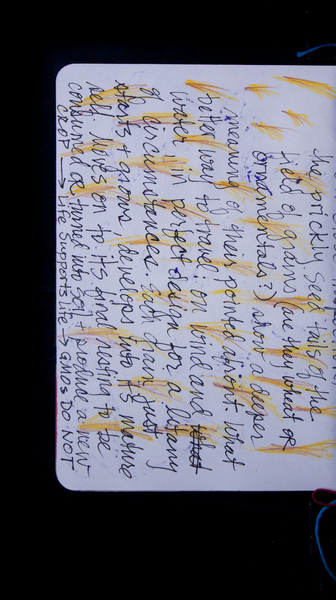 The prickly seed tails of the
field of grains (are they wheat or
ornamentals?) show a deeper
meaning of being pointed apront. What
better way to travel on wind and
water in perfect design for a litany
of circumstances. Each grain just
starts, learns, develops into its mature
self, lives on to its final resting to be
consumed or turned into soil + produce a new
crop. → Life Supports Life → GMOs DO NOT